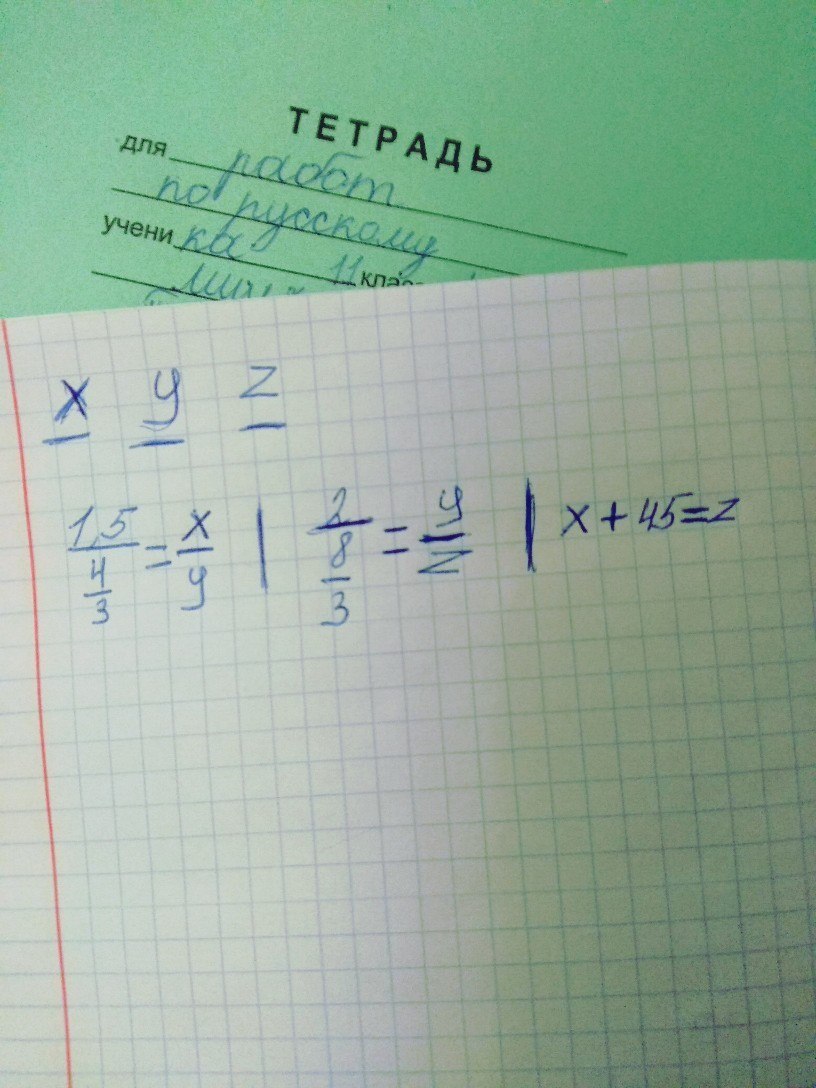 ТЕТРАДЬ
для работ
по русскому
учени ка
11 клас
x y z
1,5/(4/3) = x/y | 2/(8/3) = y/z | x + 45 = z